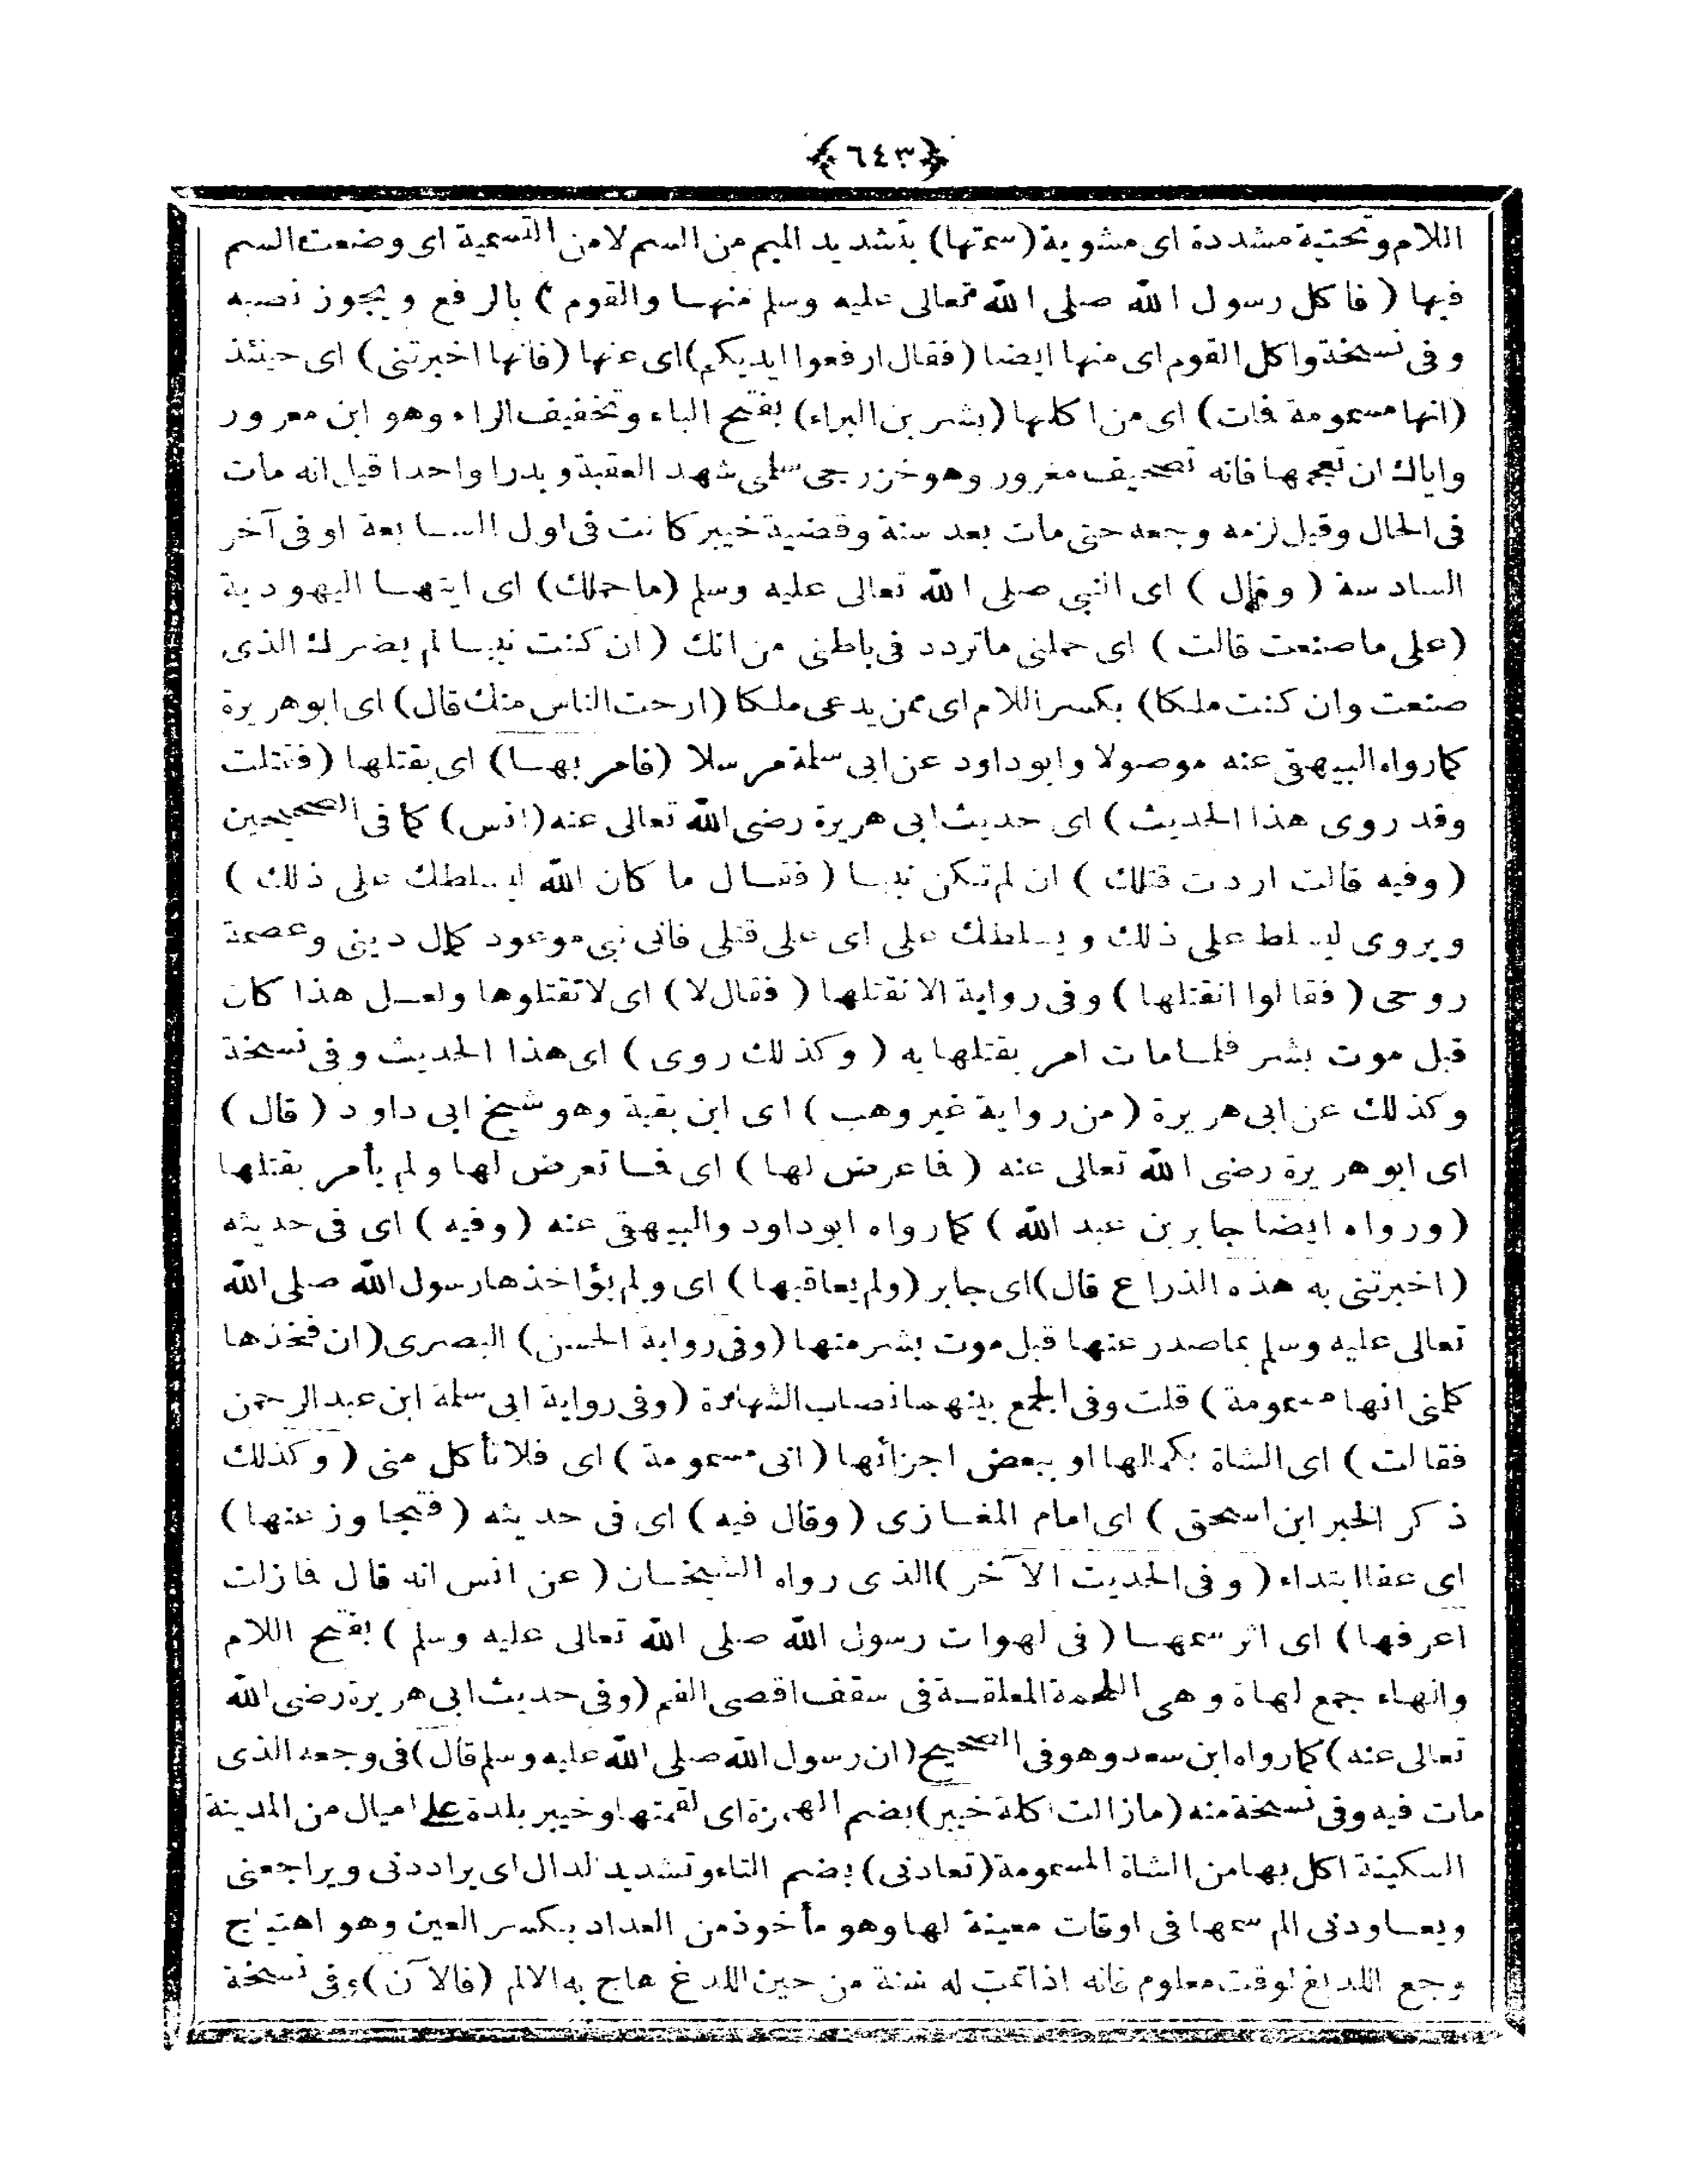 ﴿٦٤٣﴾
اللام وتحتية مشددة اى مشوية (سمتها) بتشديد الميم من السم لامن التسمية اى وضعت السم
فيها (فاكل رسول الله صلى الله تعالى عليه وسلم منهـا والقوم) بالرفع ويجوز نصبه
وفى نسخة واكل القوم اى منها ايضا (فقال ارفعوا ايديكم) اى عنها (فانها اخبرتنى) اى حينئذ
(انها مسمومة فمات) اى من اكلها (بشر بن البراء) بفتح الباء وتخفيف الراء وهو ابن معرور
واياك ان تعجمها فانه تصحيف مغرور وهو خزرجى سلمى شهد العقبة وبدرا واحدا قيل انه مات
فى الحال وقيل لزمه وجعه حتى مات بعد سنة وقضية خيبر كانت فى اول السـابعة اوفى آخر
السادسة (وقال) اى النبى صلى الله تعالى عليه وسلم (ماحملك) اى ايتهـا اليهودية
(على ماصنعت قالت) اى حملنى ماتردد فى باطنى من انك (ان كنت نبيـا لم يضرك الذى
صنعت وان كنت ملكا) بكسر اللام اى ممن يدعى ملكا (ارحت الناس منك قال) اى ابوهريرة
كمارواه البيهقى عنه موصولا وابوداود عن ابى سلمة مرسلا (فامر بهـا) اى بقتلها (فقتلت
وقد روى هذا الحديث) اى حديث ابى هريرة رضى الله تعالى عنه (انس) كمافى الصحيحين
(وفيه قالت اردت قتلك) ان لم تكن نبيـا (فقـال ما كان الله ليسلطك على ذلك)
ويروى ليسلط على ذلك ويسلطك على اى على قتلى فانى نبى موعود كمال دينى وعصمة
روحى (فقالوا انقتلها) وفى رواية الا نقتلها (فقال لا) اى لاتقتلوها ولعـل هذا كان
قبل موت بشر فلمـامات امر بقتلها به (وكذلك روى) اى هذا الحديث وفى نسخة
وكذلك عن ابى هريرة (من رواية غير وهب) اى ابن بقية وهو شيخ ابى داود (قال)
اى ابوهريرة رضى الله تعالى عنه (فما عرض لها) اى فمـا تعرض لها ولم يأمر بقتلها
(ورواه ايضا جابر بن عبد الله) كمارواه ابوداود والبيهقى عنه (وفيه) اى فى حديثه
(اخبرتنى به هذه الذراع قال) اى جابر (ولم يعاقبها) اى ولم يؤاخذها رسول الله صلى الله
تعالى عليه وسلم بماصدر عنها قبل موت بشر منها (وفى رواية الحسن) البصرى (ان فخذها
كلمنى انها مسمومة) قلت وفى الجمع بينهمـا نصاب الشهادة (وفى رواية ابى سلمة ابن عبد الرحمن
فقالت) اى الشاة بكمالها او ببعض اجزائها (انى مسمومة) اى فلا تأكل منى (وكذلك
ذكر الخبر ابن اسحق) اى امام المغـازى (وقال فيه) اى فى حديثه (فتجاوز عنها)
اى عفا ابتداء (وفى الحديث الآخر) الذى رواه الشيخـان (عن انس انه قال فمازلت
اعرفها) اى اثر سمهـا (فى لهوات رسول الله صلى الله تعالى عليه وسلم) بفتح اللام
والهاء جمع لهاة وهى اللحمة المعلقـة فى سقف اقصى الفم (وفى حديث ابى هريرة رضى الله
تعالى عنه) كمارواه ابن سعد وهو فى الصحيح (ان رسول الله صلى الله عليه وسلم قال) فى وجعه الذى
مات فيه وفى نسخة منه (مازالت اكلة خيبر) بضم الهمزة اى لقمتها وخيبر بلدة على اميال من المدينة
السكينة اكل بها من الشاة المسمومة (تعادنى) بضم التاء وتشديد الدال اى يراددنى ويراجعنى
ويعـاودنى الم سمها فى اوقات معينة لها وهو مأخوذ من العداد بـكسر العين وهو اهتياج
وجع اللديغ لوقت معلوم فانه اذا تمت له سنة من حين اللدغ هاج به الالم (فالآن) وفى نسخة